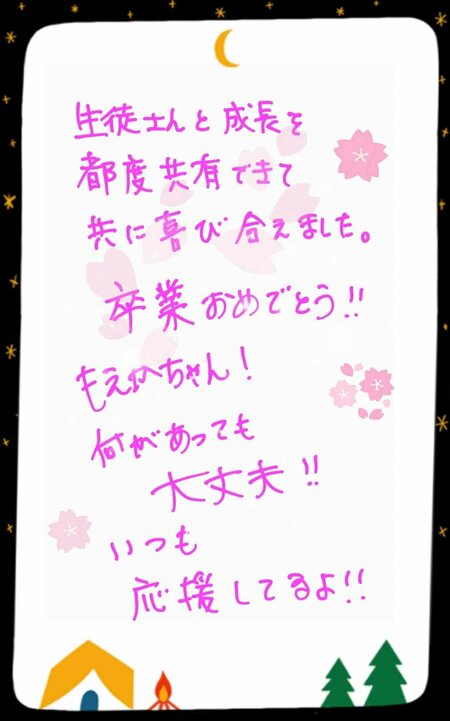 生徒さんと成長を
都度共有できて
共に喜び合えました。
卒業おめでとう!!
もえかちゃん!
何があっても
大丈夫!!
いつも
応援してるよ!!